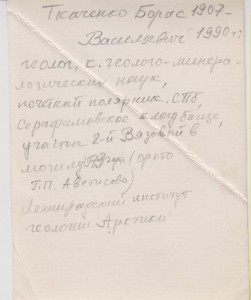 Ткаченко Борис 1907-
Васильевич 1990 гг
геолог, к. геолого-минера-
логических наук,
почётный полярник. СПб,
Серафимовское кладбище,
участок 2-й Вязовый в
могила (фото
Т.П. Аветисова)
Ленинградский институт
геологии Арктики